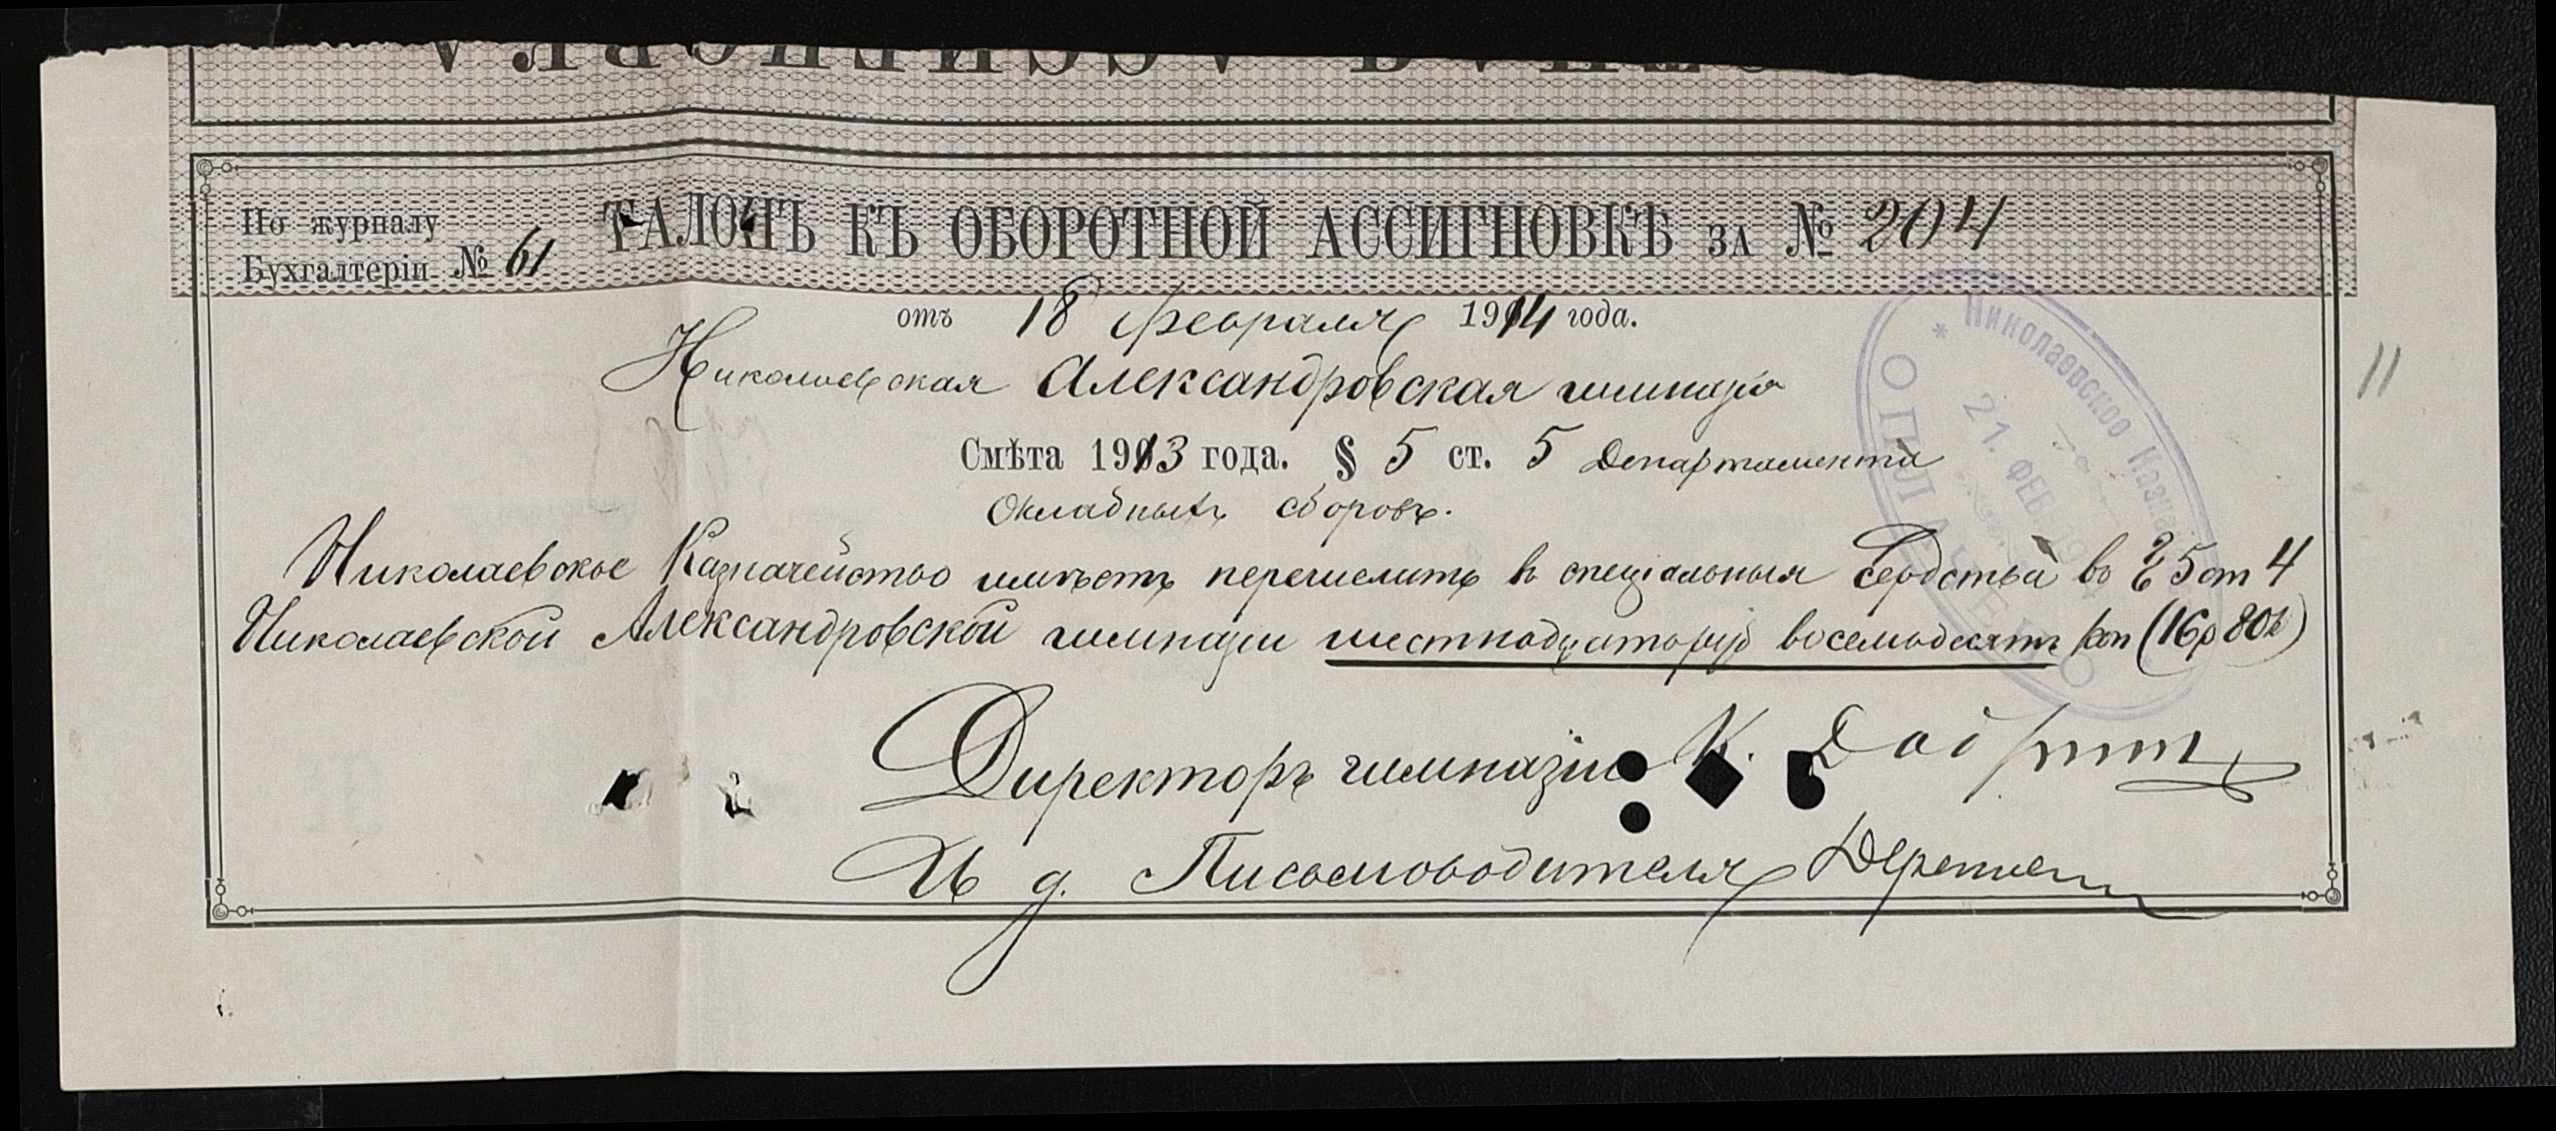 По журналу
Бухгалтеріи № 61
ТАЛОНЪ КЪ ОБОРОТНОЙ АССИГНОВКѢ за № 204
отъ 18 февраля 1914 года.
Николаевская Александровская гимназія
Смѣта 1913 года. § 5 ст. 5 Департамента
Окладныхъ сборовъ.
Николаевское Казначейство имѣетъ перечислить въ спеціальныя средства во § 5 ст 4
Николаевской Александровской гимназіи шестнадцать руб восемьдесятъ коп (16р 80к)
Директоръ гимназіи К.
И д. Письмоводителя
* Николаевское Казнач
21. ФЕВ. 1914
ОПЛАЧЕНО
11